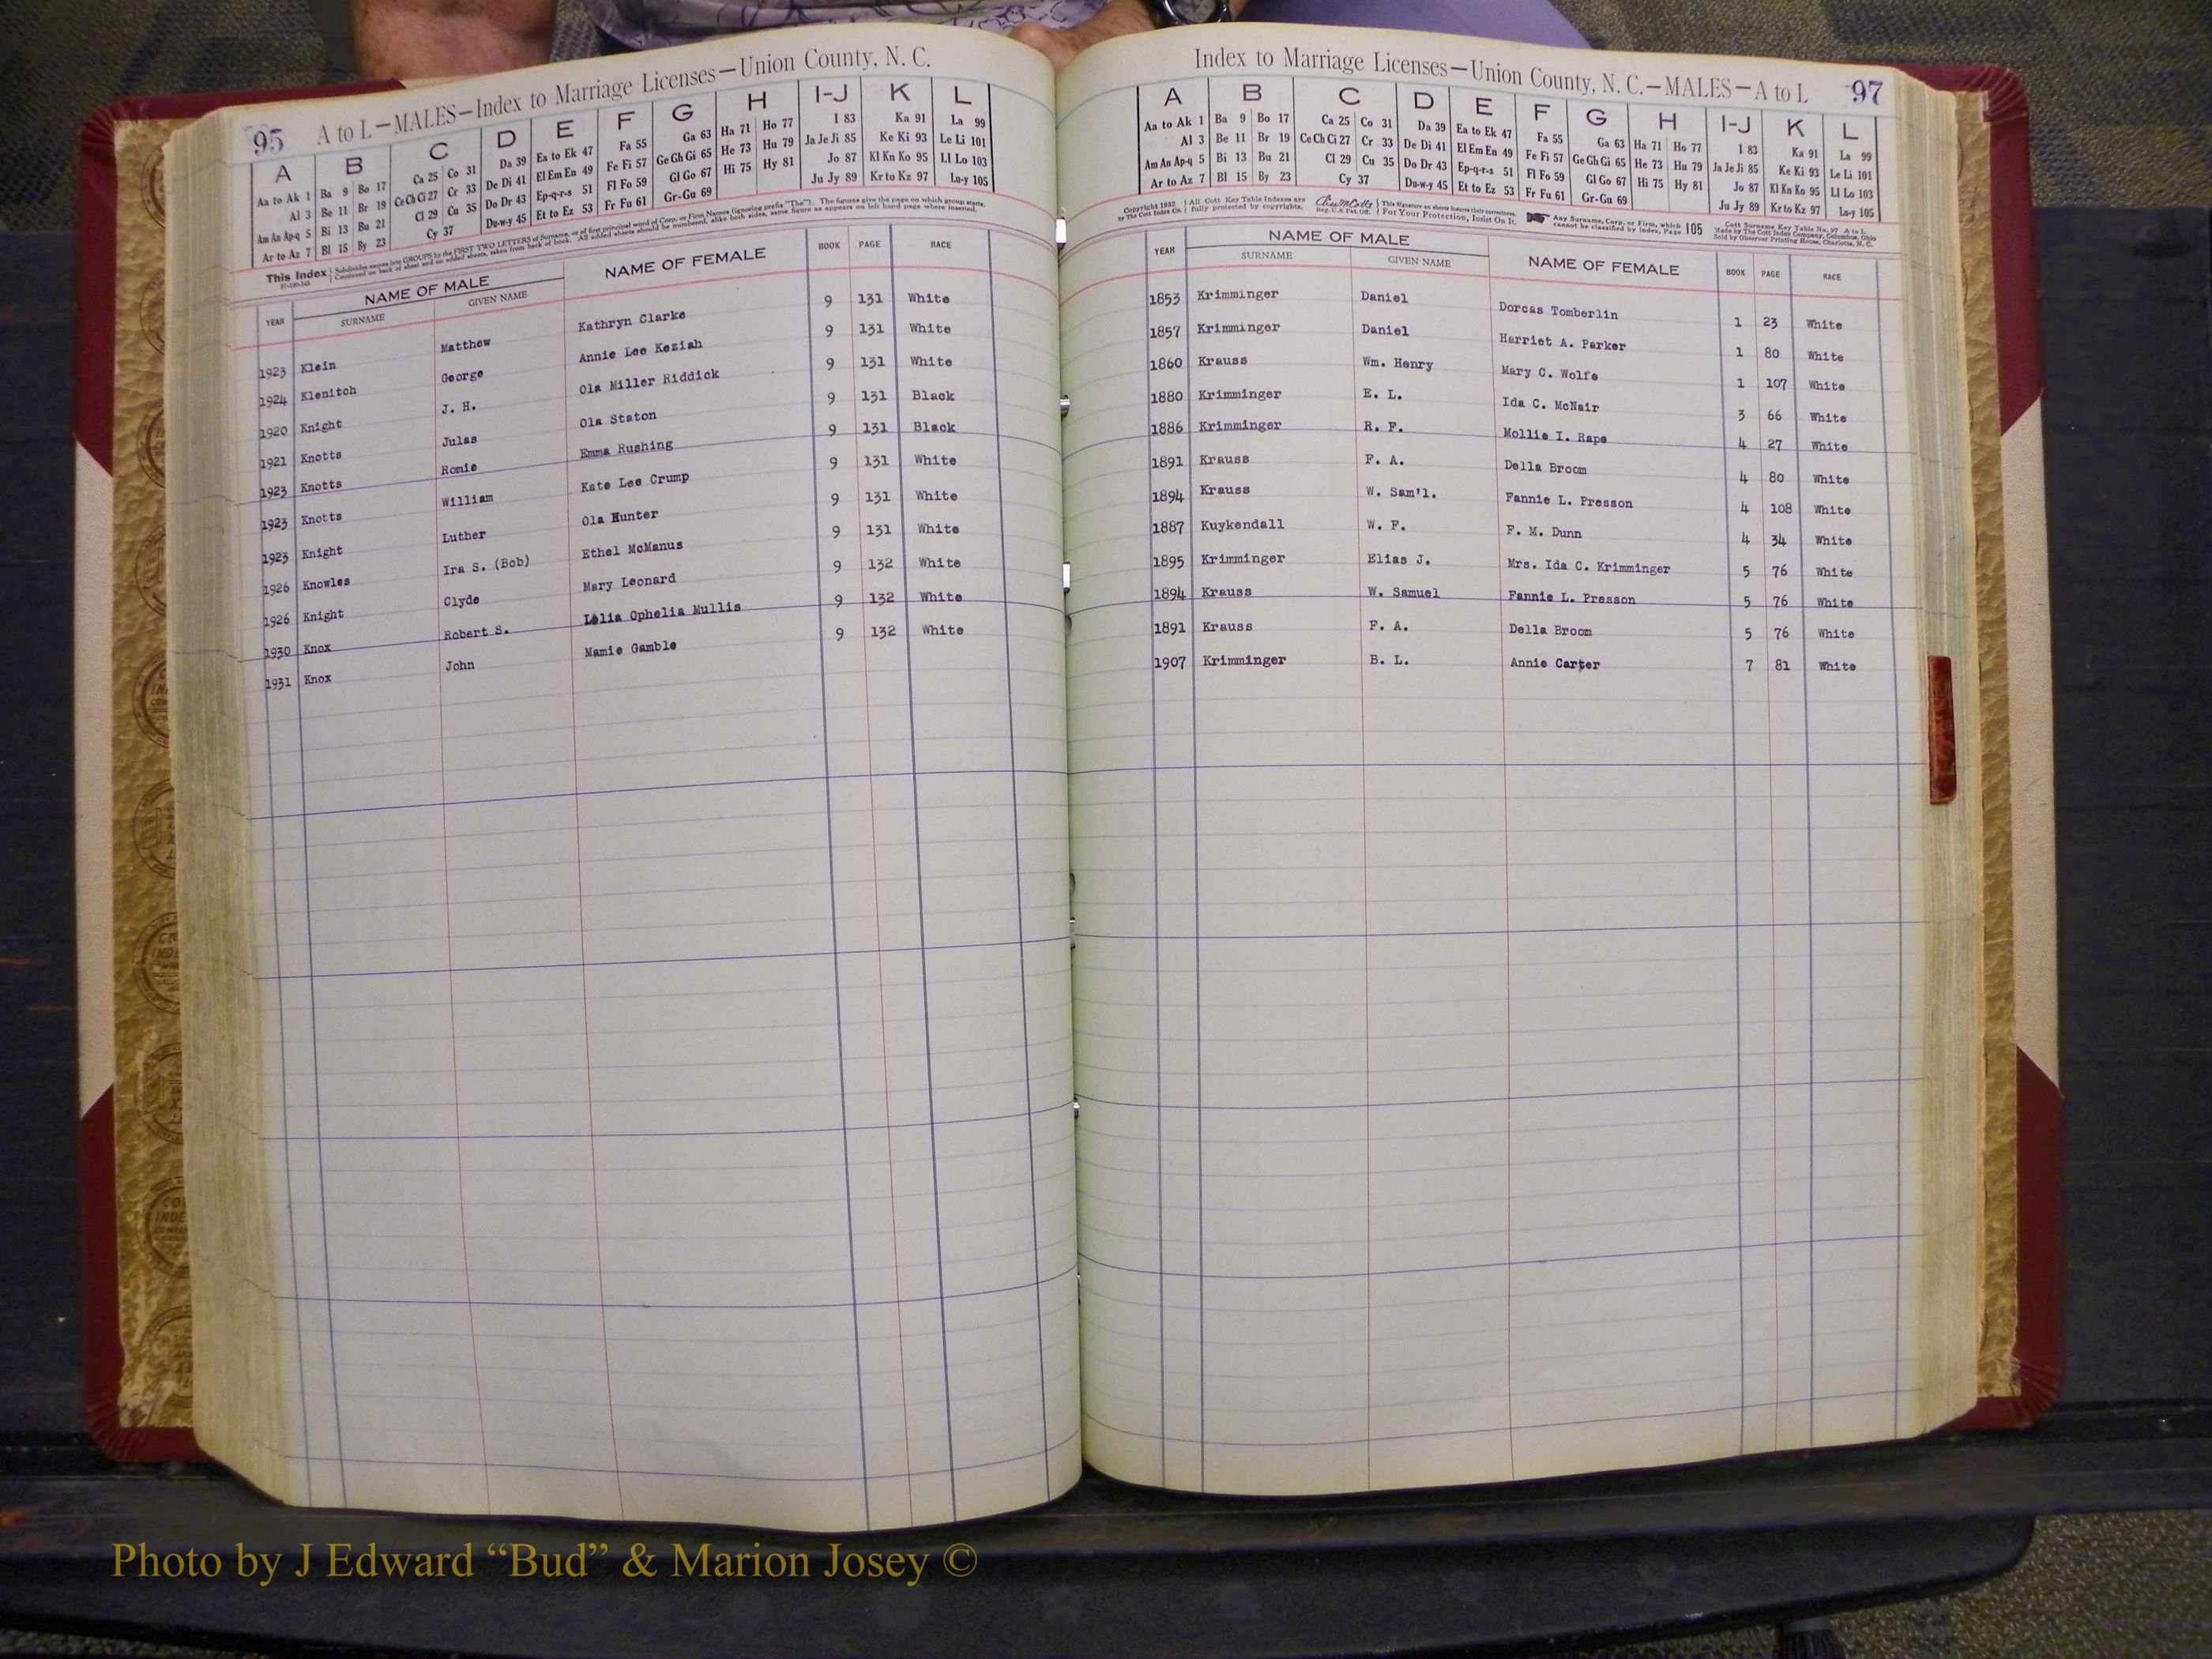 95 A to L—MALES—Index to Marriage Licenses—Union County, N. C.
A B C D E F G H I-J K L
Aa to Ak 1 Ba 9 Bo 17 Ca 25 Co 31 Da 39 Ea to Ek 47 Fa 55 Ga 63 Ha 71 Ho 77 I 83 Ka 91 La 99
Al 3 Be 11 Br 19 Ce Ch Ci 27 Cr 33 De Di 41 El Em En 49 Fe Fi 57 Ge Gh Gi 65 He 73 Hu 79 Ja Je Ji 85 Ke Ki 93 Le Li 101
Am An Ap-q 5 Bi 13 Bu 21 Cl 29 Cu 35 Do Dr 43 Ep-q-r-s 51 Fl Fo 59 Gl Go 67 Hi 75 Hy 81 Jo 87 Kl Kn Ko 95 Ll Lo 103
Ar to Az 7 Bl 15 By 23 Cy 37 Du-w-y 45 Et to Ez 53 Fr Fu 61 Gr-Gu 69 Ju Jy 89 Kr to Kz 97 Lu-y 105
This Index Subdivides names into GROUPS by the FIRST TWO LETTERS of Surname, or of first principal word of Corp. or Firm Names (ignoring prefix "The"). The figures give the page on which group starts.
Continued on back of sheet and on added sheets, taken from back of book. All added sheets should be numbered, alike both sides, same figure as appears on left hand page where inserted.
YEAR NAME OF MALE NAME OF FEMALE BOOK PAGE RACE
SURNAME GIVEN NAME
1923 Klein Matthew Kathryn Clarke 9 131 White
1924 Klenitch George Annie Lee Keziah 9 131 White
1920 Knight J. H. Ola Miller Riddick 9 131 White
1921 Knotts Julas Ola Staton 9 131 Black
1923 Knotts Romie Emma Rushing 9 131 Black
1923 Knotts William Kate Lee Crump 9 131 White
1923 Knight Luther Ola Hunter 9 131 White
1926 Knowles Ira S. (Bob) Ethel McManus 9 131 White
1926 Knight Clyde Mary Leonard 9 132 White
1930 Knox Robert S. Lelia Ophelia Mullis 9 132 White
1931 Knox John Mamie Gamble 9 132 White
Index to Marriage Licenses—Union County, N. C.—MALES—A to L 97
A B C D E F G H I-J K L
Aa to Ak 1 Ba 9 Bo 17 Ca 25 Co 31 Da 39 Ea to Ek 47 Fa 55 Ga 63 Ha 71 Ho 77 I 83 Ka 91 La 99
Al 3 Be 11 Br 19 Ce Ch Ci 27 Cr 33 De Di 41 El Em En 49 Fe Fi 57 Ge Gh Gi 65 He 73 Hu 79 Ja Je Ji 85 Ke Ki 93 Le Li 101
Am An Ap-q 5 Bi 13 Bu 21 Cl 29 Cu 35 Do Dr 43 Ep-q-r-s 51 Fl Fo 59 Gl Go 67 Hi 75 Hy 81 Jo 87 Kl Kn Ko 95 Ll Lo 103
Ar to Az 7 Bl 15 By 23 Cy 37 Du-w-y 45 Et to Ez 53 Fr Fu 61 Gr-Gu 69 Ju Jy 89 Kr to Kz 97 Lu-y 105
Copyright 1932 All Cott Key Table Indexes are This Signature on sheets insures their correctness. Any Surname, Corp. or Firm, which 105 Cott Surname Key Table No. 97 A to L
by The Cott Index Co. fully protected by copyrights. Reg. U.S. Pat. Off. For Your Protection, Insist On It. cannot be classified by Index, Page Made by The Cott Index Company, Columbus, Ohio
Sold by Observer Printing House, Charlotte, N. C.
YEAR NAME OF MALE NAME OF FEMALE BOOK PAGE RACE
SURNAME GIVEN NAME
1853 Krimminger Daniel Dorcas Tomberlin 1 23 White
1857 Krimminger Daniel Harriet A. Parker 1 80 White
1860 Krauss Wm. Henry Mary C. Wolfe 1 107 White
1880 Krimminger E. L. Ida C. McNair 3 66 White
1886 Krimminger R. F. Mollie I. Rape 4 27 White
1891 Krauss F. A. Della Broom 4 80 White
1894 Krauss W. Sam'l. Fannie L. Presson 4 108 White
1887 Kuykendall W. F. F. M. Dunn 4 34 White
1895 Krimminger Elias J. Mrs. Ida C. Krimminger 5 76 White
1894 Krauss W. Samuel Fannie L. Presson 5 76 White
1891 Krauss F. A. Della Broom 5 76 White
1907 Krimminger B. L. Annie Carter 7 81 White
Photo by J Edward “Bud” & Marion Josey ©